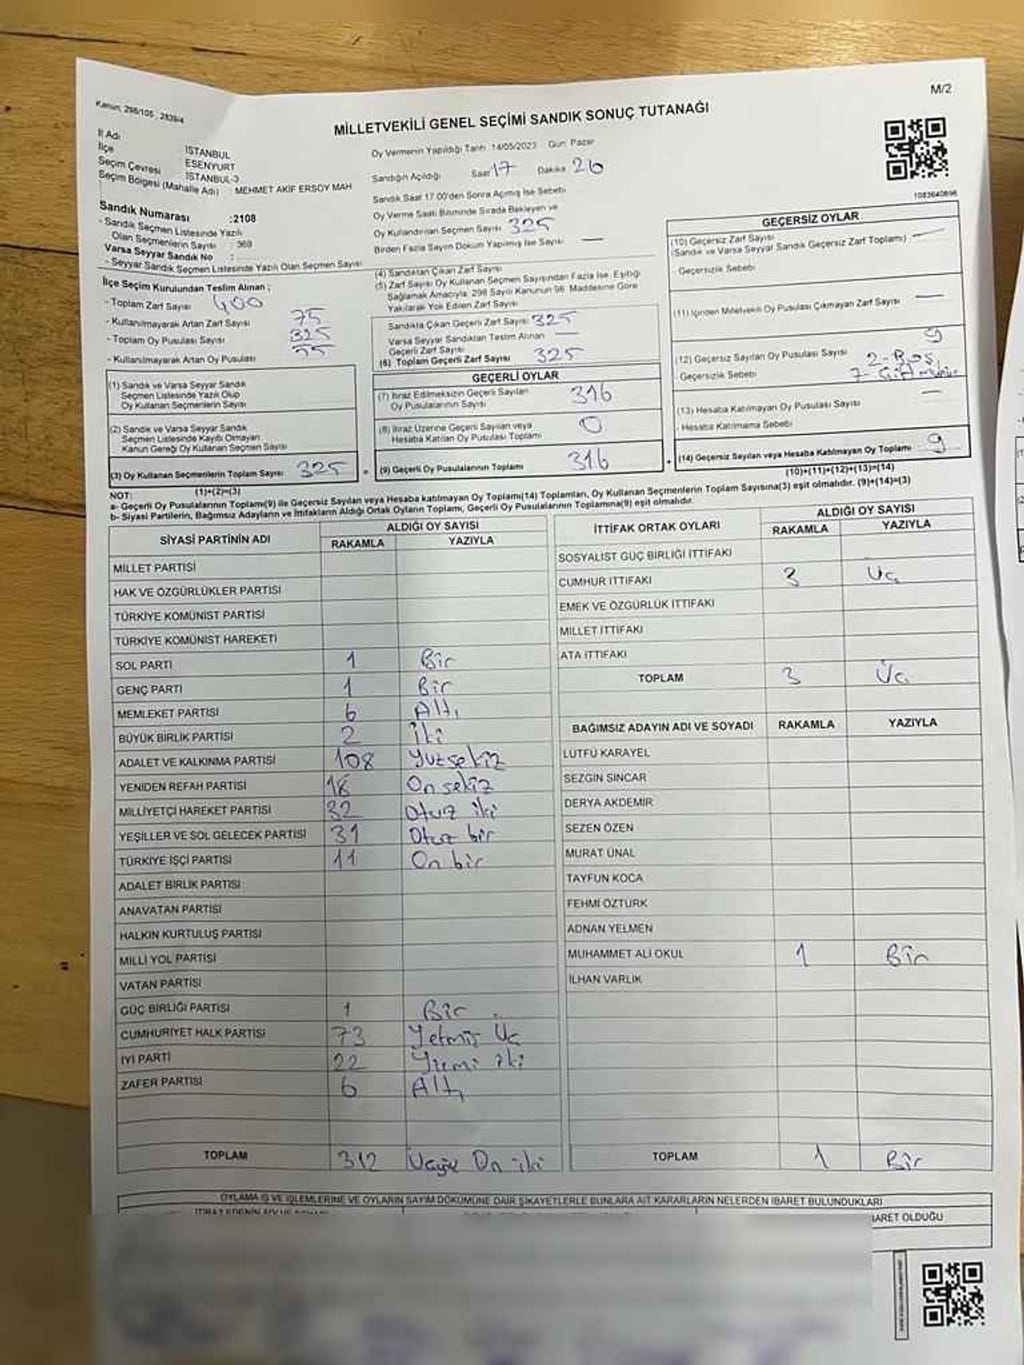 Kanun; 298/105 , 2839/4
M/2
MİLLETVEKİLİ GENEL SEÇİMİ SANDIK SONUÇ TUTANAĞI
İl Adı İSTANBUL
İlçe ESENYURT
Seçim Çevresi İSTANBUL-3
Seçim Bölgesi (Mahalle Adı) MEHMET AKİF ERSOY MAH
Sandık Numarası :2108
- Sandık Seçmen Listesinde Yazılı
Olan Seçmenlerin Sayısı : 369
Varsa Seyyar Sandık No :
- Seyyar Sandık Seçmen Listesinde Yazılı Olan Seçmen Sayısı
İlçe Seçim Kurulundan Teslim Alınan ;
- Toplam Zarf Sayısı 400
- Kullanılmayarak Artan Zarf Sayısı 75
- Toplam Oy Pusulası Sayısı 325
- Kullanılmayarak Artan Oy Pusulası 75
(1) Sandık ve Varsa Seyyar Sandık
Seçmen Listesinde Yazılı Olup
Oy Kullanan Seçmenlerin Sayısı
(2) Sandık ve Varsa Seyyar Sandık
Seçmen Listesinde Kayıtlı Olmayan
Kanun Gereği Oy Kullanan Seçmen Sayısı
(3) Oy Kullanan Seçmenlerin Toplam Sayısı 325
(1)+(2)=(3)
Oy Vermenin Yapıldığı Tarih 14/05/2023 Gün: Pazar
Sandığın Açıldığı Saat 17 Dakika 26
Sandık Saat 17.00'den Sonra Açılmış İse Sebebi
Oy Verme Saati Bitiminde Sırada Bekleyen ve
Oy Kullandırılan Seçmen Sayısı 325
Birden Fazla Sayım Döküm Yapılmış İse Sayısı —
(4) Sandıktan Çıkan Zarf Sayısı
(5) Zarf Sayısı Oy Kullanan Seçmen Sayısından Fazla İse, Eşitliği
Sağlamak Amacıyla, 298 Sayılı Kanunun 98. Maddesine Göre
Yakılarak Yok Edilen Zarf Sayısı
Sandıkta Çıkan Geçerli Zarf Sayısı 325
Varsa Seyyar Sandıktan Teslim Alınan
Geçerli Zarf Sayısı —
(6) Toplam Geçerli Zarf Sayısı 325
GEÇERLİ OYLAR
(7) İtiraz Edilmeksizin Geçerli Sayılan
Oy Pusulalarının Sayısı 316
(8) İtiraz Üzerine Geçerli Sayılan veya
Hesaba Katılan Oy Pusulası Toplamı 0
(9) Geçerli Oy Pusulalarının Toplamı 316
1083640896
GEÇERSİZ OYLAR
(10) Geçersiz Zarf Sayısı
(Sandık ve Varsa Seyyar Sandık Geçersiz Zarf Toplamı) —
- Geçersizlik Sebebi
(11) İçinden Milletvekili Oy Pusulası Çıkmayan Zarf Sayısı —
(12) Geçersiz Sayılan Oy Pusulası Sayısı 9
- Geçersizlik Sebebi 2-Boş
7-
(13) Hesaba Katılmayan Oy Pusulası Sayısı —
- Hesaba Katılmama Sebebi
(14) Geçersiz Sayılan veya Hesaba Katılmayan Oy Toplamı 9
(10)+(11)+(12)+(13)=(14)
NOT:
a- Geçerli Oy Pusulalarının Toplamı(9) ile Geçersiz Sayılan veya Hesaba katılmayan Oy Toplamı(14) Toplamları, Oy Kullanan Seçmenlerin Toplam Sayısına(3) eşit olmalıdır. (9)+(14)=(3)
b- Siyasi Partilerin, Bağımsız Adayların ve İttifakların Aldığı Ortak Oyların Toplamı, Geçerli Oy Pusulalarının Toplamına(9) eşit olmalıdır.
SİYASİ PARTİNİN ADI ALDIĞI OY SAYISI
RAKAMLA YAZIYLA
MİLLET PARTİSİ
HAK VE ÖZGÜRLÜKLER PARTİSİ
TÜRKİYE KOMÜNİST PARTİSİ
TÜRKİYE KOMÜNİST HAREKETİ
SOL PARTİ 1 Bir
GENÇ PARTİ 1 Bir
MEMLEKET PARTİSİ 6 Altı
BÜYÜK BİRLİK PARTİSİ 2 İki
ADALET VE KALKINMA PARTİSİ 108 Yüzsekiz
YENİDEN REFAH PARTİSİ 18 On sekiz
MİLLİYETÇİ HAREKET PARTİSİ 32 Otuz iki
YEŞİLLER VE SOL GELECEK PARTİSİ 31 Otuz bir
TÜRKİYE İŞÇİ PARTİSİ 11 On bir
ADALET BİRLİK PARTİSİ
ANAVATAN PARTİSİ
HALKIN KURTULUŞ PARTİSİ
MİLLİ YOL PARTİSİ
VATAN PARTİSİ
GÜÇ BİRLİĞİ PARTİSİ 1 Bir
CUMHURİYET HALK PARTİSİ 73 Yetmiş Üç
İYİ PARTİ 22 Yirmi iki
ZAFER PARTİSİ 6 Altı
TOPLAM 312 Üçyüz On iki
İTTİFAK ORTAK OYLARI ALDIĞI OY SAYISI
RAKAMLA YAZIYLA
SOSYALİST GÜÇ BİRLİĞİ İTTİFAKI
CUMHUR İTTİFAKI 3 Üç
EMEK VE ÖZGÜRLÜK İTTİFAKI
MİLLET İTTİFAKI
ATA İTTİFAKI
TOPLAM 3 Üç
BAĞIMSIZ ADAYIN ADI VE SOYADI RAKAMLA YAZIYLA
LÜTFÜ KARAYEL
SEZGİN SİNCAR
DERYA AKDEMİR
SEZEN ÖZEN
MURAT ÜNAL
TAYFUN KOCA
FEHMİ ÖZTÜRK
ADNAN YELMEN
MUHAMMET ALİ OKUL 1 Bir
İLHAN VARLIK
TOPLAM 1 Bir
OYLAMA İŞ VE İŞLEMLERİNE VE OYLARIN SAYIM DÖKÜMÜNE DAİR ŞİKAYETLERLE BUNLARA AİT KARARLARIN NELERDEN İBARET BULUNDUKLARI
OLDUĞU